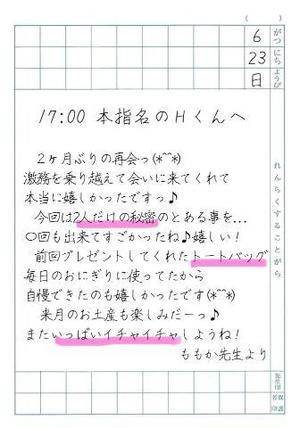 (　　)
6 がつ
23 にち
日 ようび
れんらくすることがら
17:00 本指名のHくんへ
2ヶ月ぶりの再会っ(*^^*)
激務を乗り越えて会いに来てくれて
本当に嬉しかったですっ♪
今回は2人だけの秘密のとある事を…
〇回も出来てすごかったね♪嬉しい！
前回プレゼントしてくれたトートバッグ
毎日のおにぎりに使ってたから
自慢できたのも嬉しかったです(*^^*)
来月のお土産も楽しみだーっ♪
またいっぱいイチャイチャしようね！
ももか先生より